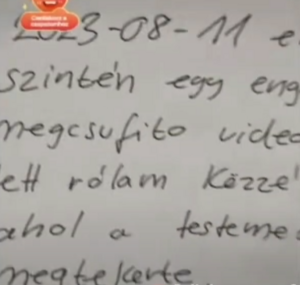 2023-08-11 e
szintén egy eng
megcsufito video
ett rólam közzé
ahol a testeme
megtekerte